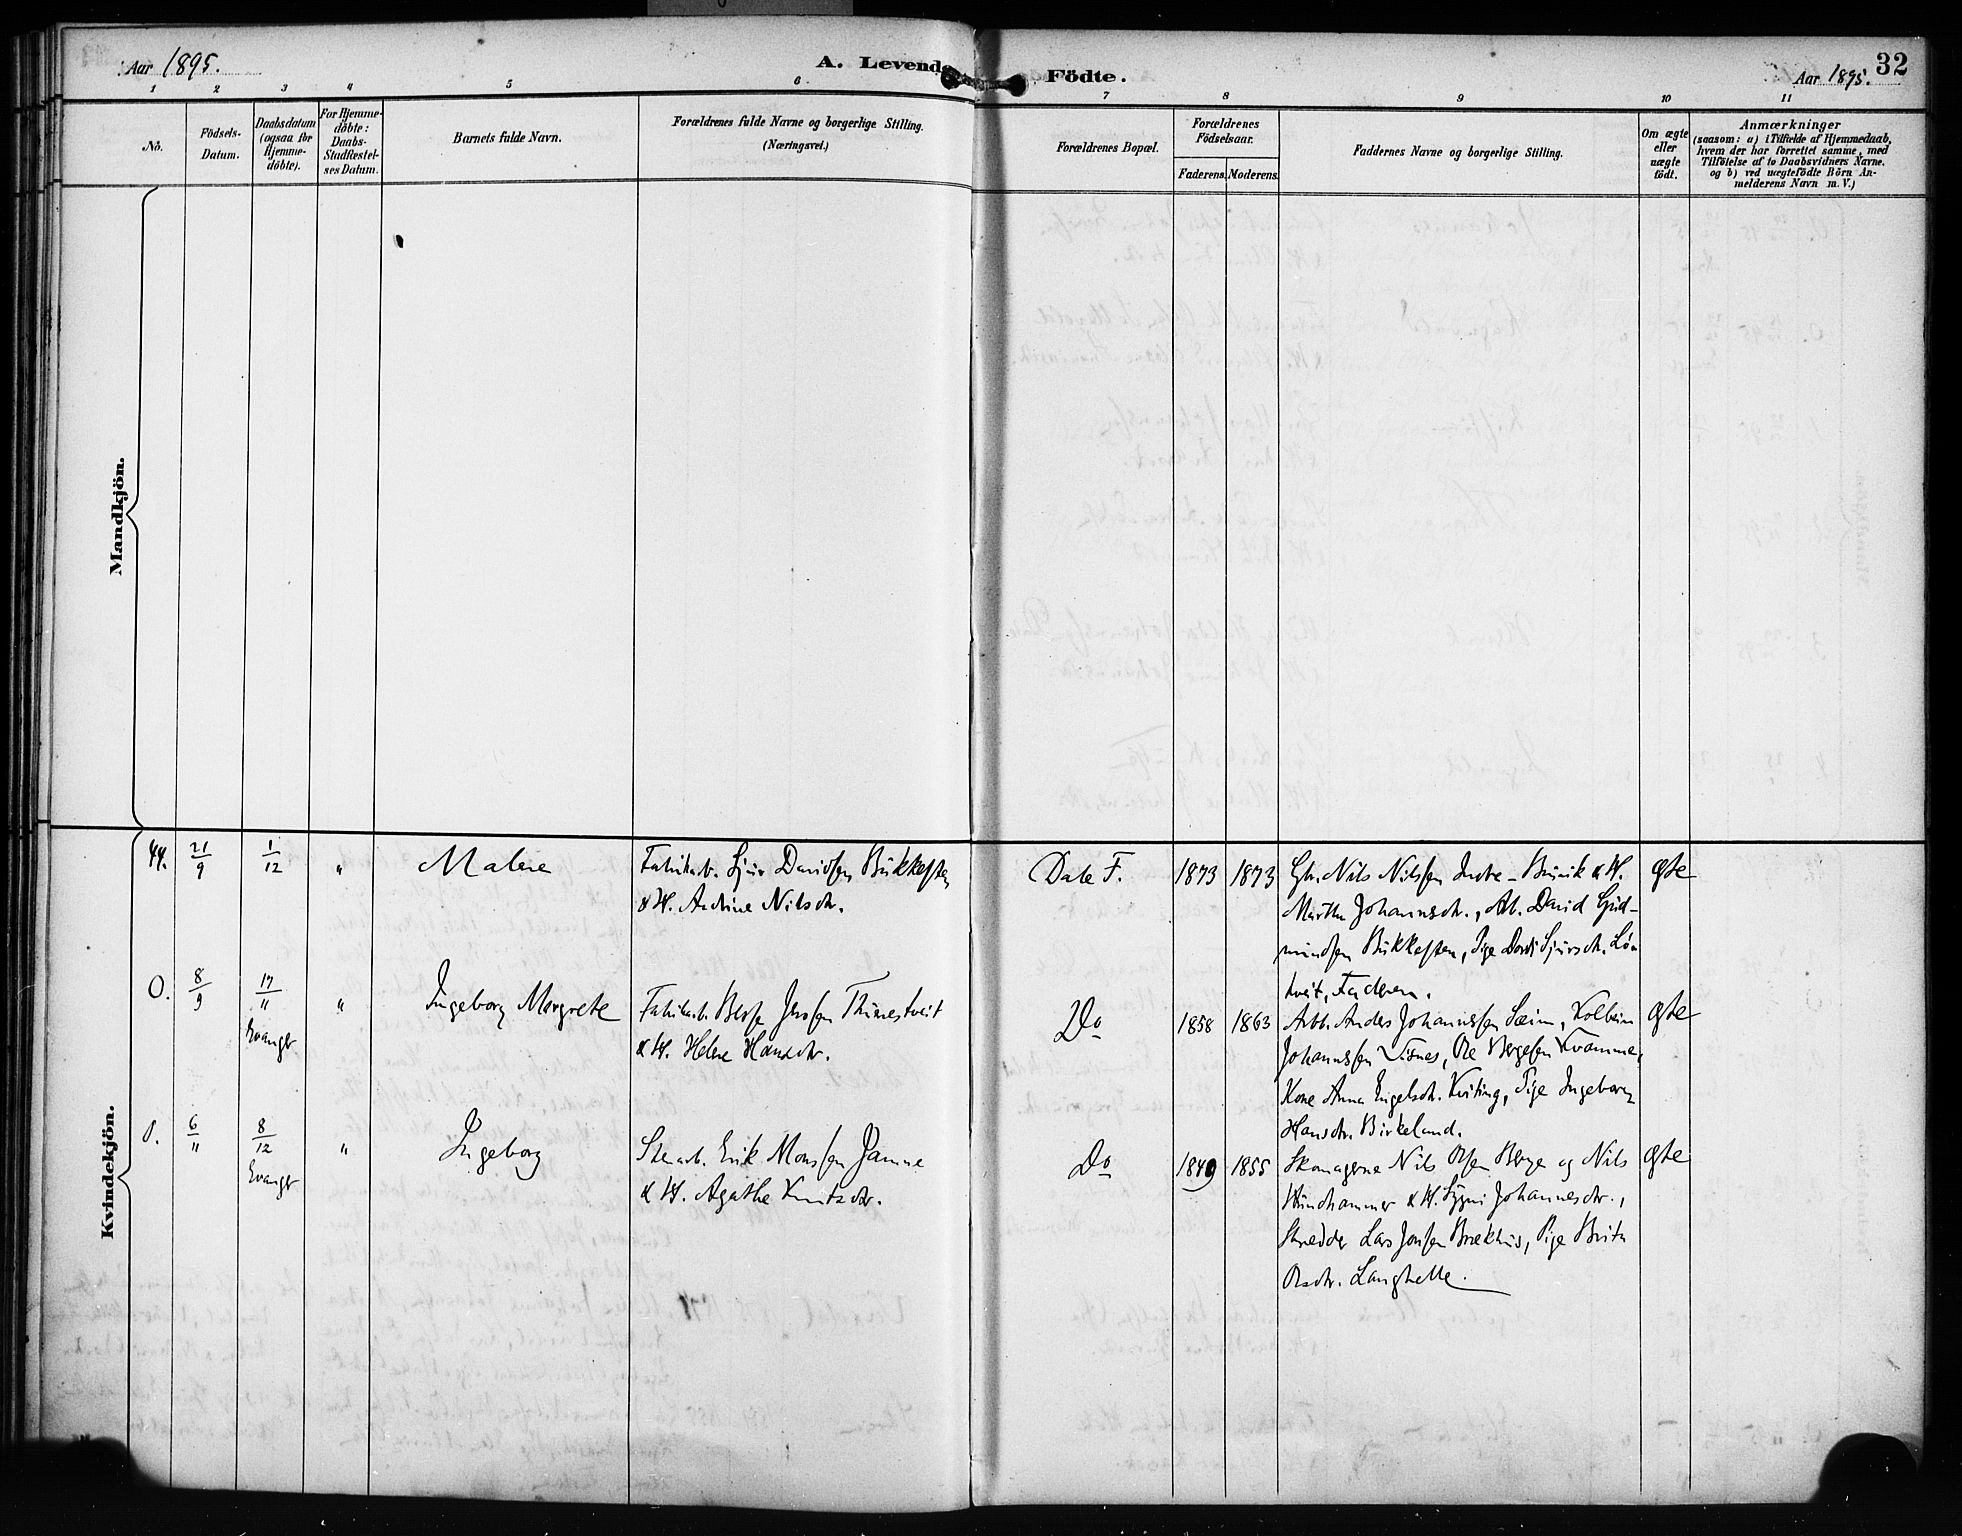 Aar 1895.
A. Levende Födte.
Aar 1895.
32
1 2 3 4 5 6 7 8 9 10 11
No.
Födsels-
Datum.
Daabsdatum
(ogsaa for
Hjemme-
döbte).
For Hjemme-
döbte:
Daabs-
Stadfæstel-
ses Datum.
Barnets fulde Navn.
Forældrenes fulde Navne og borgerlige Stilling.
(Næringsvei.)
Forældrenes Bopæl.
Forældrenes
Födselsaar.
Faderens. Moderens.
Faddernes Navne og borgerlige Stilling.
Om ægte
eller
uægte
födt.
Anmærkninger
(saasom: a) i Tilfælde af Hjemmedaab,
hvem der har forrettet samme, med
Tilföielse af to Daabsvidners Navne.
og b) ved uægtefödte Börn An-
melderens Navn m. V.)
Mandkjön.
Kvindekjön.
44. 21/9 1/12 " Malene
Fabrikarb. Sjur Davidsen Bukkesten
& H. Andrine Nilsdtr.
Dale F. 1873 1873
Nils Nilsen Indre-Bruvik & H.
Martha Johannsdtr., Arb. David Gud-
mundsen Bukkesten, Pige Sjursdtr. Løn
tveit, Faderen.
ægte
0. 8/9 17/11 " Ingeborg Margrete
Evanger
Fabrikarb. Berge Thunestveit
& H. Helene Hansdtr.
Do 1858 1863
Arb. Anders Johannessen Sæim, Kolbein
Johannessen Visnes, Ole Bergesen Kvamme,
Kone Anna Engelsdtr. Kviting, Pige Ingeborg
Hansdtr. Birkeland.
ægte
0. 6/11 8/12 " Ingeborg
Evanger
Stenarb. Erik Monssen
& H. Agathe Knutsdtr.
Do 1849 1855
Skomagerne Nils Olsen Berge og Nils
Hundhammer & H. Johannesdtr.,
Skredder Lars Jonsen Brækhus, Pige Brita
Olsdtr. Langhelle.
ægte